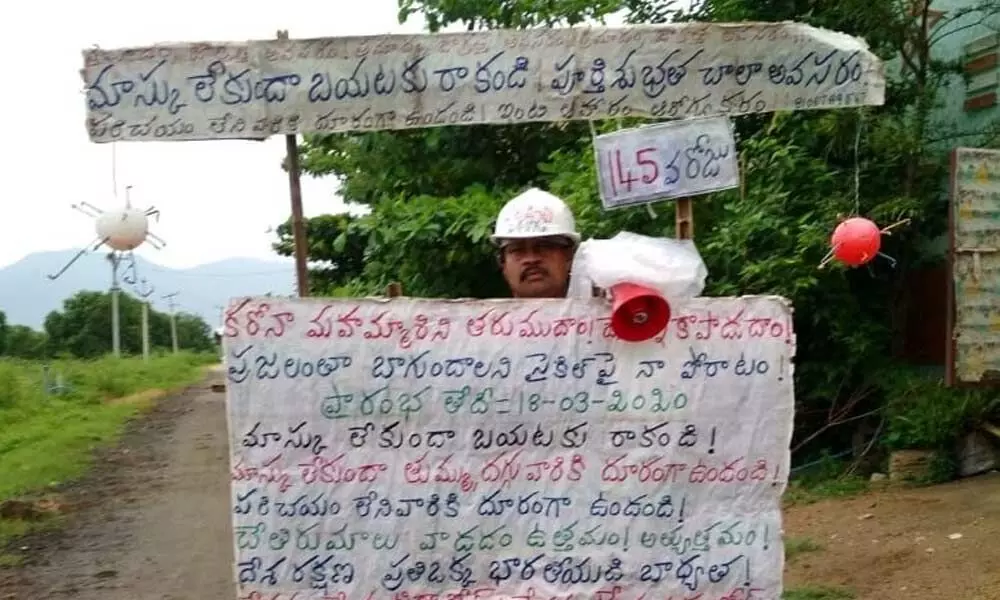 మాస్కు లేకుండా బయటకు రాకండి! పూర్తి శుభ్రత చాలా అవసరం
పరిచయం లేనివారికి దూరంగా ఉండండి! ఇంటి ఆహారం ఆరోగ్యకరం
145 వరోజు
కరోనా మహమ్మారిని తరుముదాం! కాపాడుదాం!
ప్రజలంతా బాగుండాలని సైకిల్‌పై నా పోరాటం!
ప్రారంభ తేదీ=18-03-2020
మాస్కు లేకుండా బయటకు రాకండి!
మాస్కు లేకుండా తుమ్ము, దగ్గువారికి దూరంగా ఉండండి!
పరిచయం లేనివారికి దూరంగా ఉండండి!
చేతిరుమాలు వాడడం ఉత్తమం! అత్యుత్తమం!
దేశ రక్షణ ప్రతిఒక్క భారతీయుడి బాధ్యత!